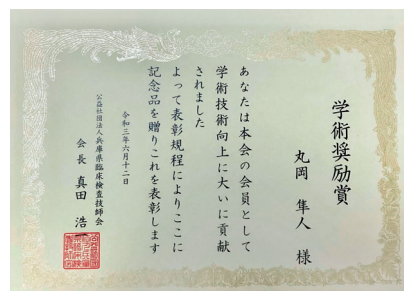 学術奨励賞
丸岡 隼人 様
あなたは本会の会員として
学術技術向上に大いに貢献
されました
よって表彰規程によりここに
記念品を贈りこれを表彰します
令和三年六月十二日
公益社団法人兵庫県臨床検査技師会
会長 真田 浩一